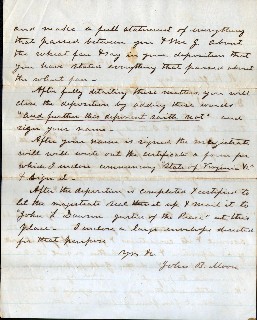 and make a full statement of everything
that passed between you & Mr G. about
the wheat fan & say in your deposition that
you have stated everything that passed about
the wheat fan –
After fully detailing these matters you will
close the deposition by adding these words
"And further this deponent saith not" and
sign your name –
After your name is signed the magistrate
will write out the certificate a form for
which I enclose commencing "State of Virginia &c"
& sign it –
After the deposition is completed & certified to
let the magistrate seal it up & mail it to
"John L Dawson Justice of the Peace" at this
place – I enclose a large envelope directed
for that purpose
Yrs &c
John B. Moon